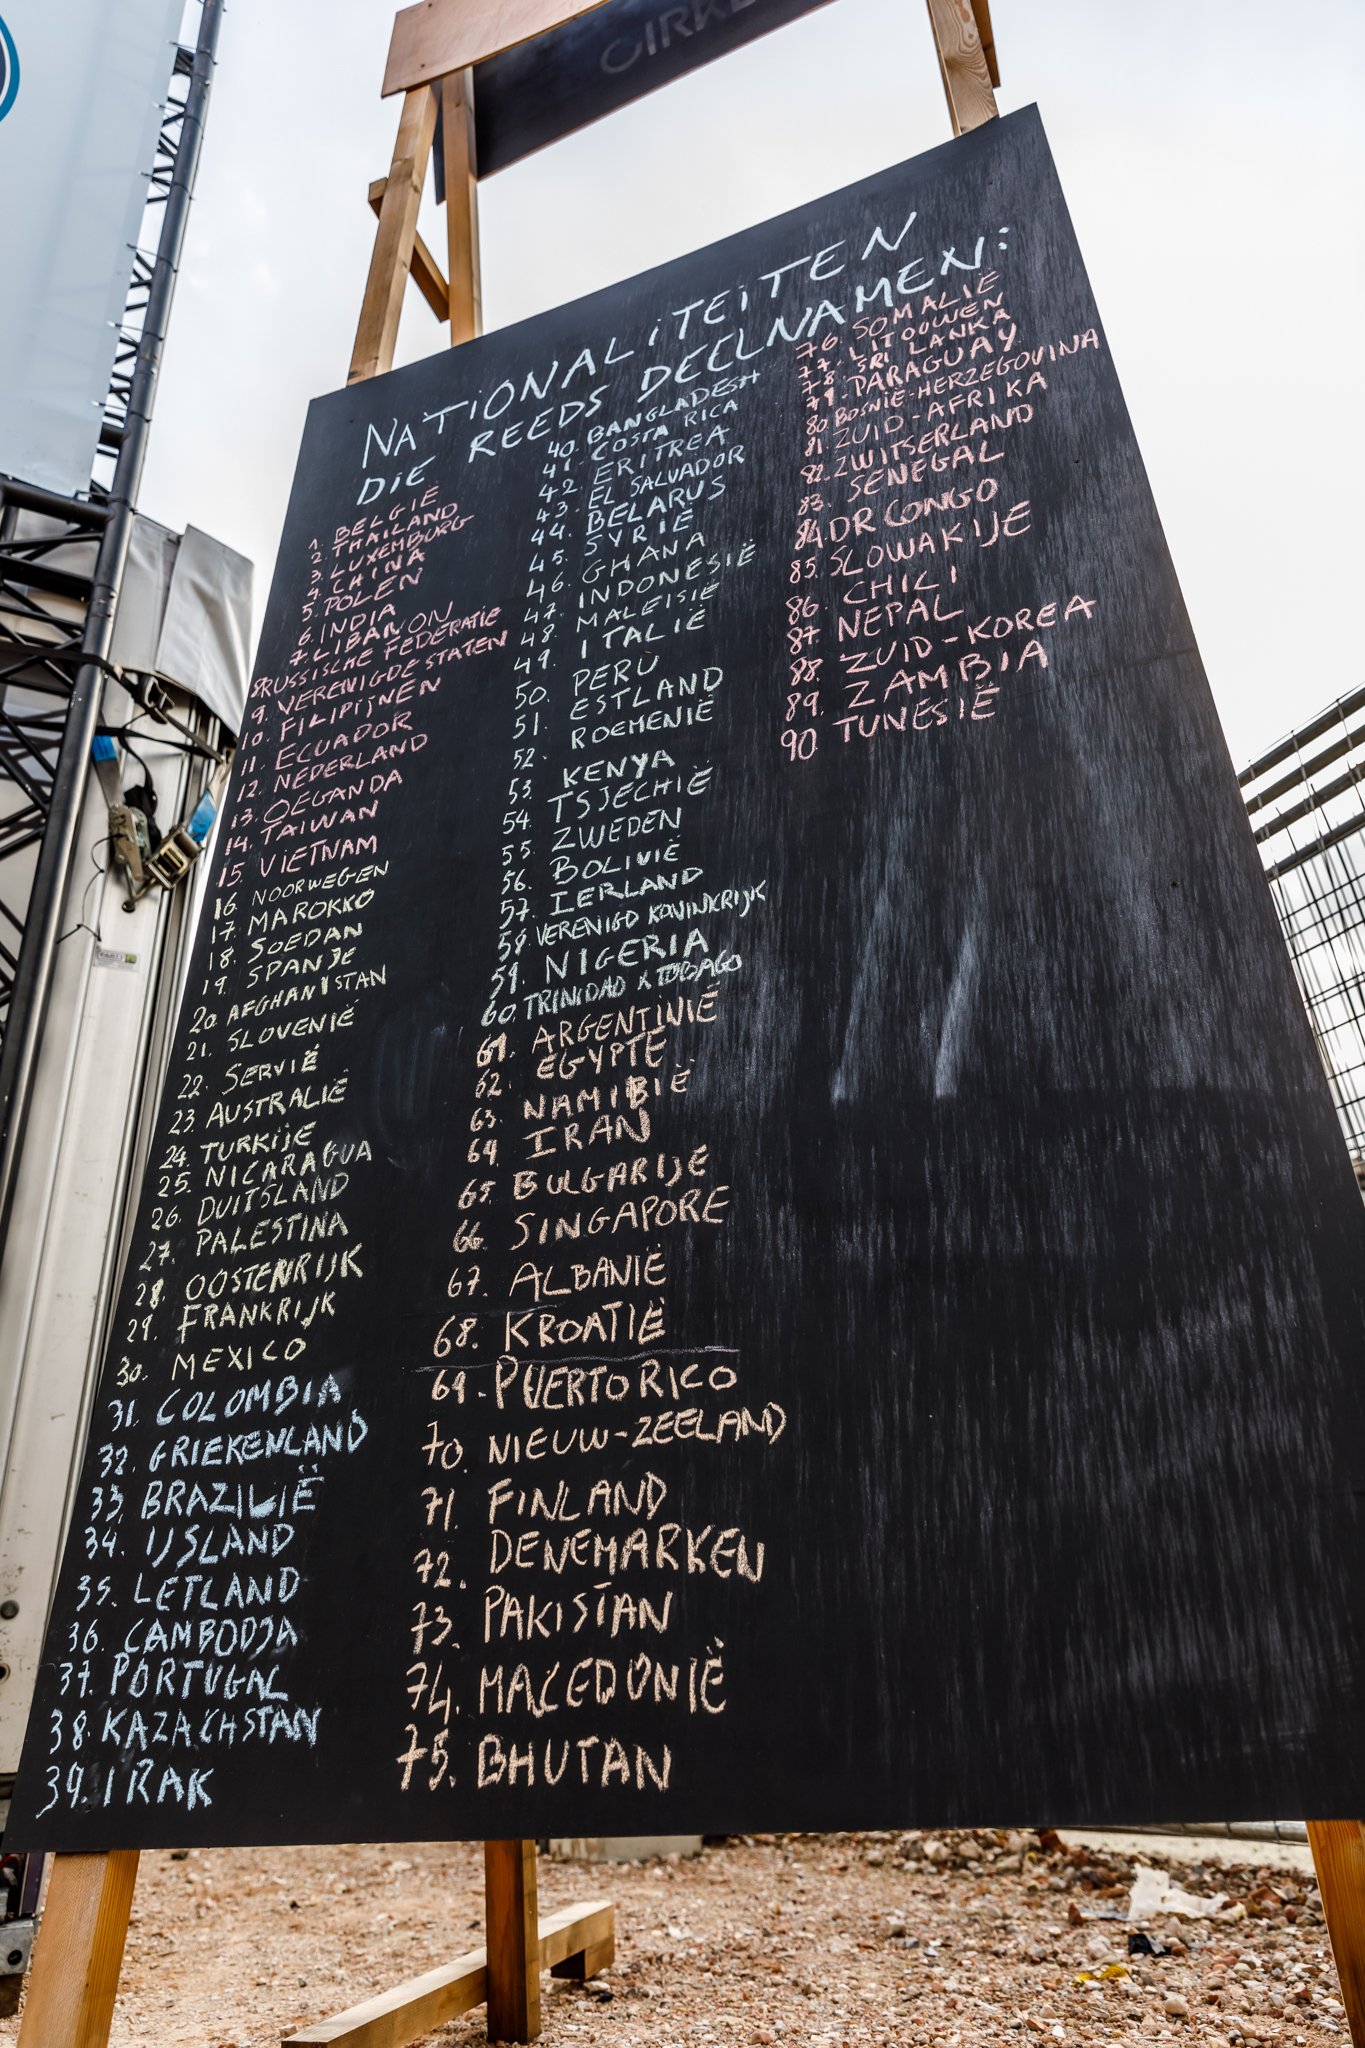 NATIONALiTEiTEN
DiE REEDS DEELNAMEN:
1. BELGIË
2. THAILAND
3. LUXEMBURG
4. CHINA
5. POLEN
6. INDIA
7. LIBANON
8 RUSSISCHE FEDERATIE
9. VERENIGDE STATEN
10. FILIPIJNEN
11. ECUADOR
12. NEDERLAND
13. OEGANDA
14. TAIWAN
15. VIETNAM
16. NOORWEGEN
17. MAROKKO
18. SOEDAN
19. SPANJE
20. AFGHANISTAN
21. SLOVENIË
22. SERVIË
23. AUSTRALIË
24. TURKIJE
25. NICARAGUA
26. DUITSLAND
27. PALESTINA
28. OOSTENRIJK
29. FRANKRIJK
30. MEXICO
31. COLOMBIA
32. GRIEKENLAND
33. BRAZILIË
34. IJSLAND
35. LETLAND
36. CAMBODJA
37. PORTUGAL
38. KAZACHSTAN
39. IRAK
40. BANGLADESH
41. COSTA RICA
42. ERITREA
43. EL SALVADOR
44. BELARUS
45. SYRIË
46. GHANA
47. INDONESIË
48. MALEISIË
49. ITALIË
50. PERU
51. ESTLAND
52. ROEMENIË
53. KENYA
54. TSJECHIË
55. ZWEDEN
56. BOLIVIË
57. IERLAND
58. VERENIGD KONINKRIJK
59. NIGERIA
60. TRINIDAD & TOBAGO
61. ARGENTINIË
62. EGYPTE
63. NAMIBIË
64. IRAN
65. BULGARIJE
66. SINGAPORE
67. ALBANIË
68. KROATIË
69. PUERTO RICO
70. NIEUW-ZEELAND
71. FINLAND
72. DENEMARKEN
73. PAKISTAN
74. MACEDONIË
75. BHUTAN
76. SOMALIË
77. LITOUWEN
78. SRI LANKA
79. PARAGUAY
80. BOSNIË-HERZEGOVINA
81. ZUID-AFRIKA
82. ZWITSERLAND
83. SENEGAL
84. DR CONGO
85. SLOWAKIJE
86. CHILI
87. NEPAL
88. ZUID-KOREA
89. ZAMBIA
90. TUNESIË